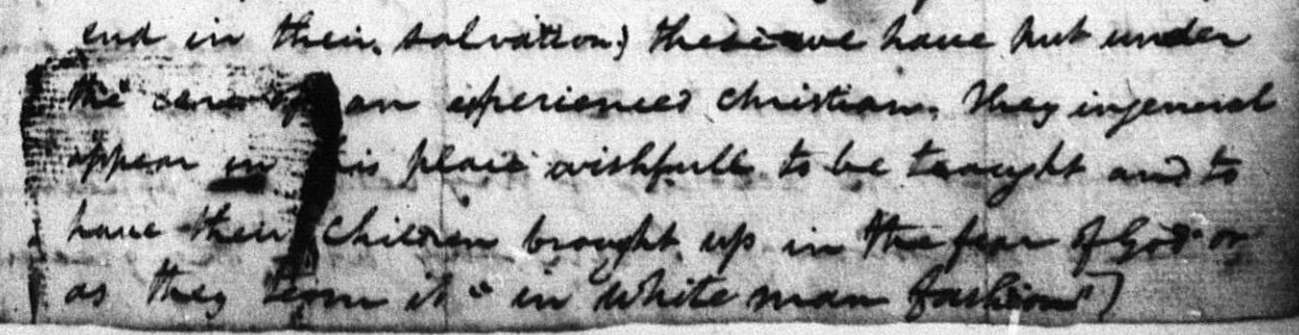 end in their salvation) these we have put under
the care of an experienced christian. They in general
appear in this place wishfull to be taught and to
have their Children brought up in the fear of God or
as they term it "in white man fashion")